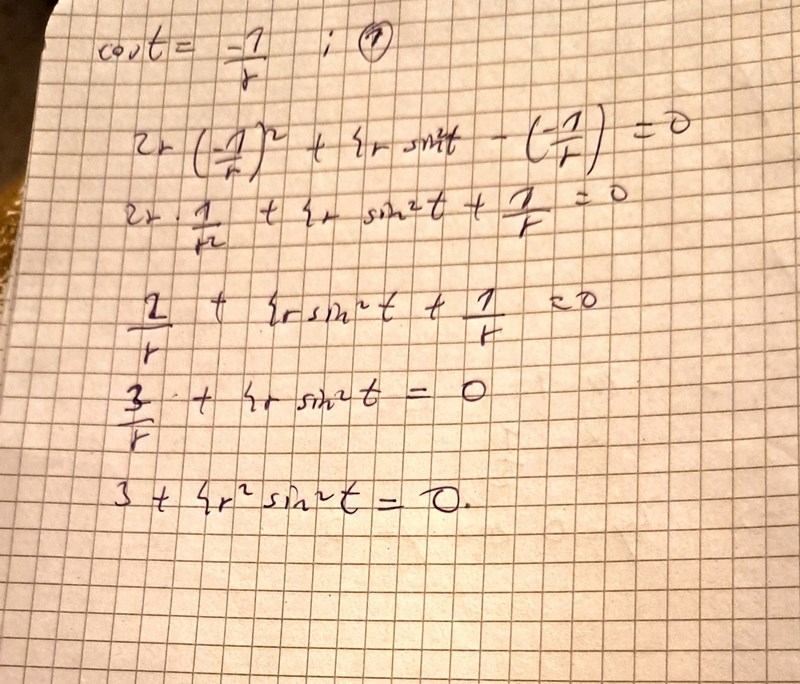 cos t = -1/r ; ①
2r (-1/r)² + 4r sin²t - (-1/r) = 0
2r · 1/r² + 4r sin²t + 1/r = 0
2/r + 4r sin²t + 1/r = 0
3/r + 4r sin²t = 0
3 + 4r² sin²t = 0.